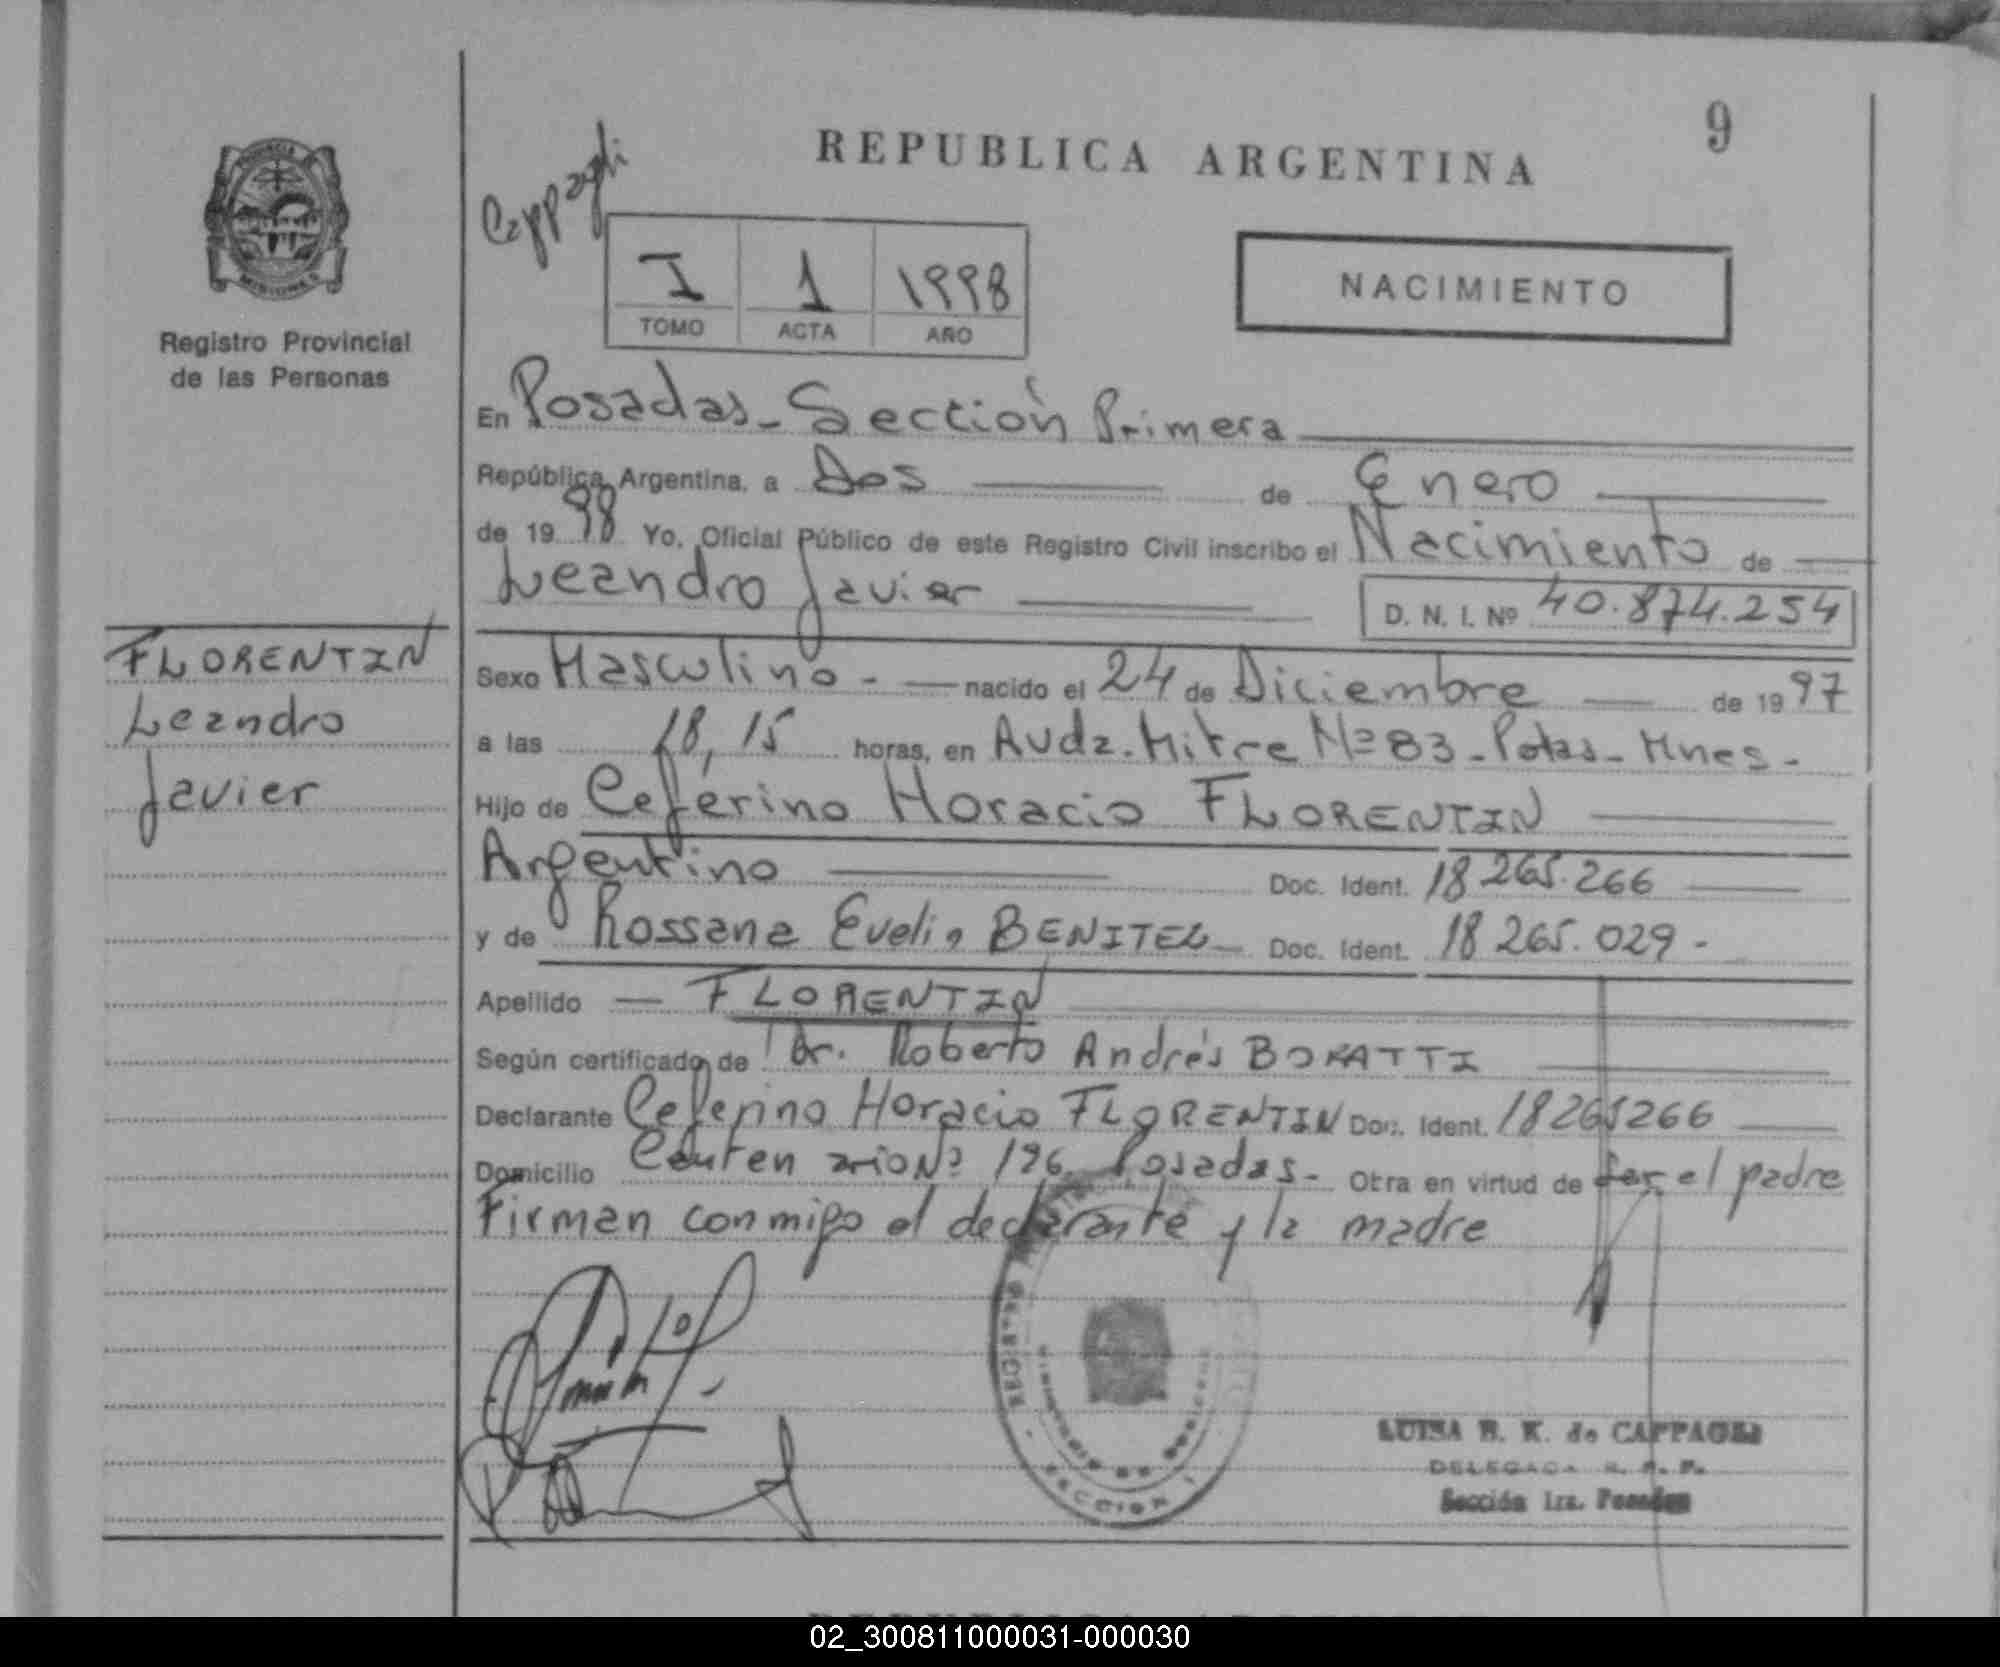 9
REPUBLICA ARGENTINA
Cappagli
PROVINCIA
MISIONES
I 1 1998
TOMO ACTA AÑO
NACIMIENTO
Registro Provincial
de las Personas
En Posadas - Sección Primera
República Argentina, a Dos de Enero
de 1998 Yo, Oficial Público de este Registro Civil inscribo el Nacimiento de
Leandro Javier D. N. I. Nº 40.874.254
FLORENTIN
Leandro
Javier
Sexo Masculino - nacido el 24 de Diciembre de 1997
a las 18,15 horas, en Avda. Mitre Nº 83 - Pdas - Mnes -
Hijo de Ceferino Horacio FLORENTIN
Argentino Doc. Ident. 18 265.266
y de Rossana Evelia BENITEZ Doc. Ident. 18 265.029 -
Apellido — FLORENTIN
Según certificado de Dr. Roberto Andrés BORATTI
Declarante Ceferino Horacio FLORENTIN Doc. Ident. 18265266
Domicilio Centenario Nº 196 Posadas - Obra en virtud de ser el padre
Firman conmigo el declarante y la madre
SECCION 1
LUISA B. K. de CAPPAGLI
DELEGADA R. P. P.
Sección 1ra. Posadas
02_300811000031-000030